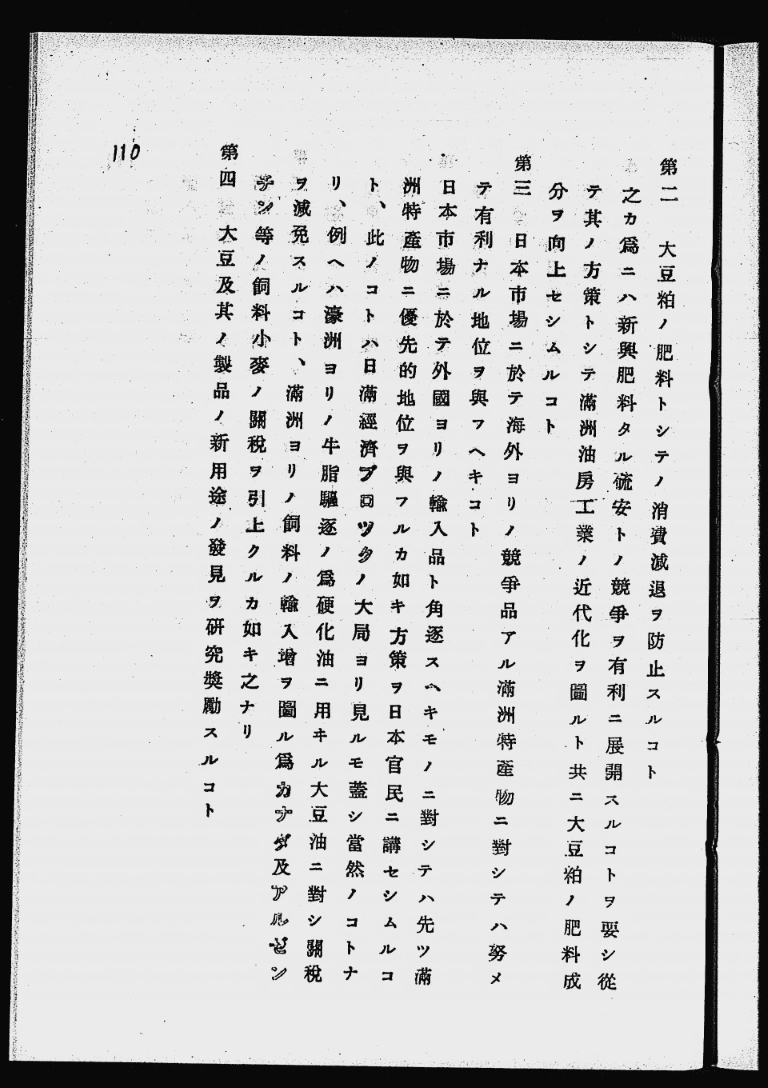 第二　大豆粕ノ肥料トシテノ消費減退ヲ防止スルコト
之カ爲ニハ新興肥料タル硫安トノ競爭ヲ有利ニ展開スルコトヲ要シ從
テ其ノ方策トシテ滿洲油房工業ノ近代化ヲ圖ルト共ニ大豆粕ノ肥料成
分ヲ向上セシムルコト
第三　日本市場ニ於テ海外ヨリノ競爭品アル滿洲特産物ニ對シテハ努メ
テ有利ナル地位ヲ與フヘキコト
日本市場ニ於テ外國ヨリノ輸入品ト角逐スヘキモノニ對シテハ先ツ滿
洲特産物ニ優先的地位ヲ與フルカ如キ方策ヲ日本官民ニ講セシムルコ
ト、此ノコトハ日滿經濟ブロツクノ大局ヨリ見ルモ蓋シ當然ノコトナ
リ、例ヘハ濠洲ヨリノ牛脂驅逐ノ爲硬化油ニ用ヰル大豆油ニ對シ關稅
ヲ減免スルコト、滿洲ヨリノ飼料ノ輸入增ヲ圖ル爲カナダ及アルゼン
チン等ノ飼料小麥ノ關稅ヲ引上クルカ如キ之ナリ
第四　大豆及其ノ製品ノ新用途ノ發見ヲ硏究奬勵スルコト
110